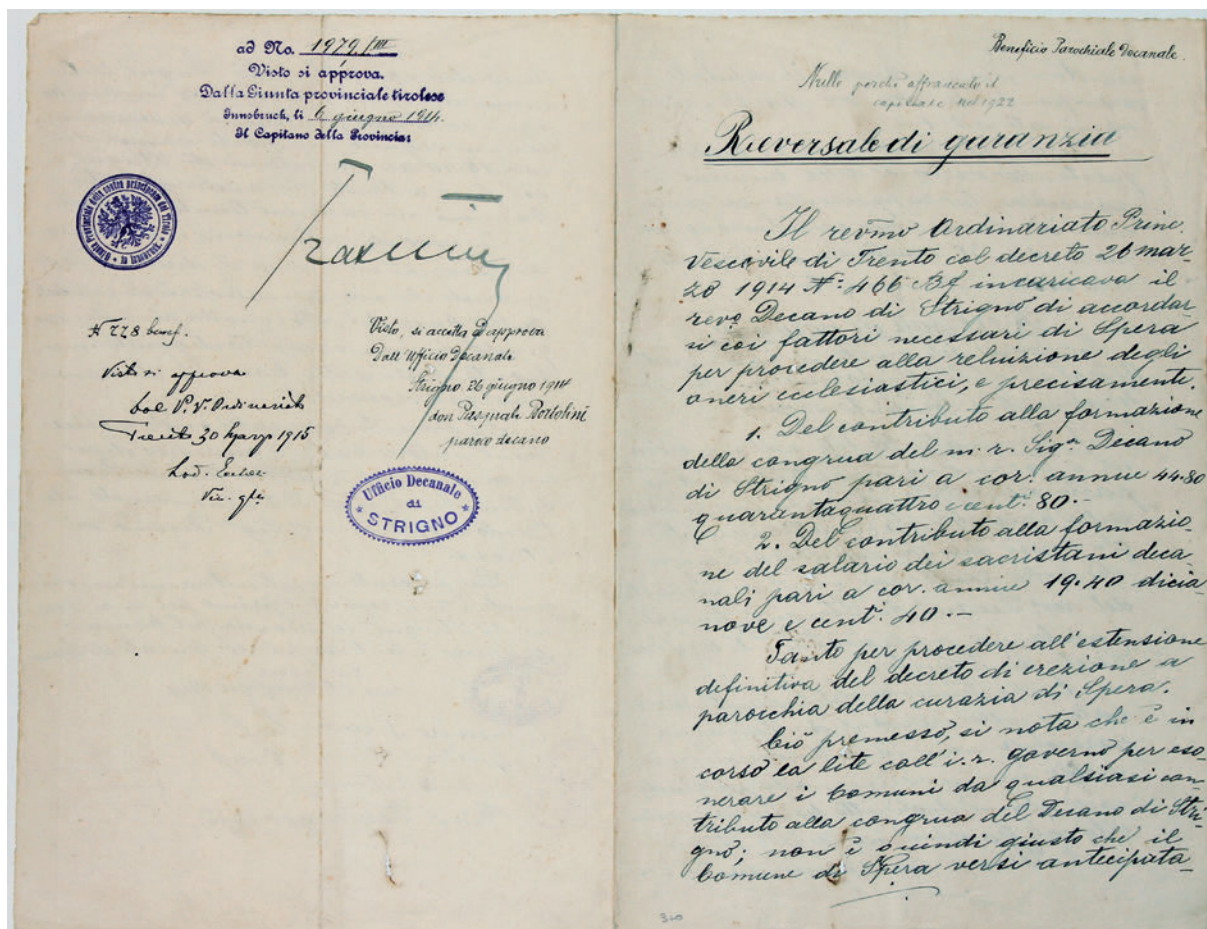 ad No. 1979/III
Visto si approva.
Dalla Giunta provinciale tirolese
Innsbruck, li 6 giugno 1914.
Il Capitano della Provincia:
Giunta Provinciale della contea principesca del Tirolo
# 228 benf.
Visto si approva
Dal P. V. Ordinariato
Trento 30 Marzo 1915
Lod.
Vic. gle
Visto, si accetta ed approva
Dall'Ufficio Decanale
Strigno 26 giugno 1914
don Pasquale Bortolini
paroco decano
Ufficio Decanale
di
* STRIGNO *
Beneficio Parochiale Decanale.
Nullo perchè affrancato il
capitale nel 1922
Reversale di garanzia
Il revmo Ordinariato Princ.
Vescovile di Trento col decreto 26 mar
zo 1914 N: 466 Bf incaricava il
revo Decano di Strigno di accordar
si coi fattori necessari di Spera
per procedere alla reluizione degli
oneri ecclesiastici, e precisamente.
1. Del contributo alla formazione
della congrua del m. r. Sigr Decano
di Strigno pari a cor. annue 44.80
quarantaquattro cent. 80.-
2. Del contributo alla formazio-
ne del salario dei sacristani deca-
nali pari a cor. annue 19.40 dicia-
nove e cent. 40.-
Tanto per procedere all'estensione
definitiva del decreto di erezione a
parocchia della curazia di Spera.
Ciò premesso, si nota che è in
corso la lite coll'i. r. governo per eso-
nerare i Comuni da qualsiasi con-
tributo alla congrua del Decano di Stri-
gno; non è quindi giusto che il
Comune di Spera versi antecipata-
300